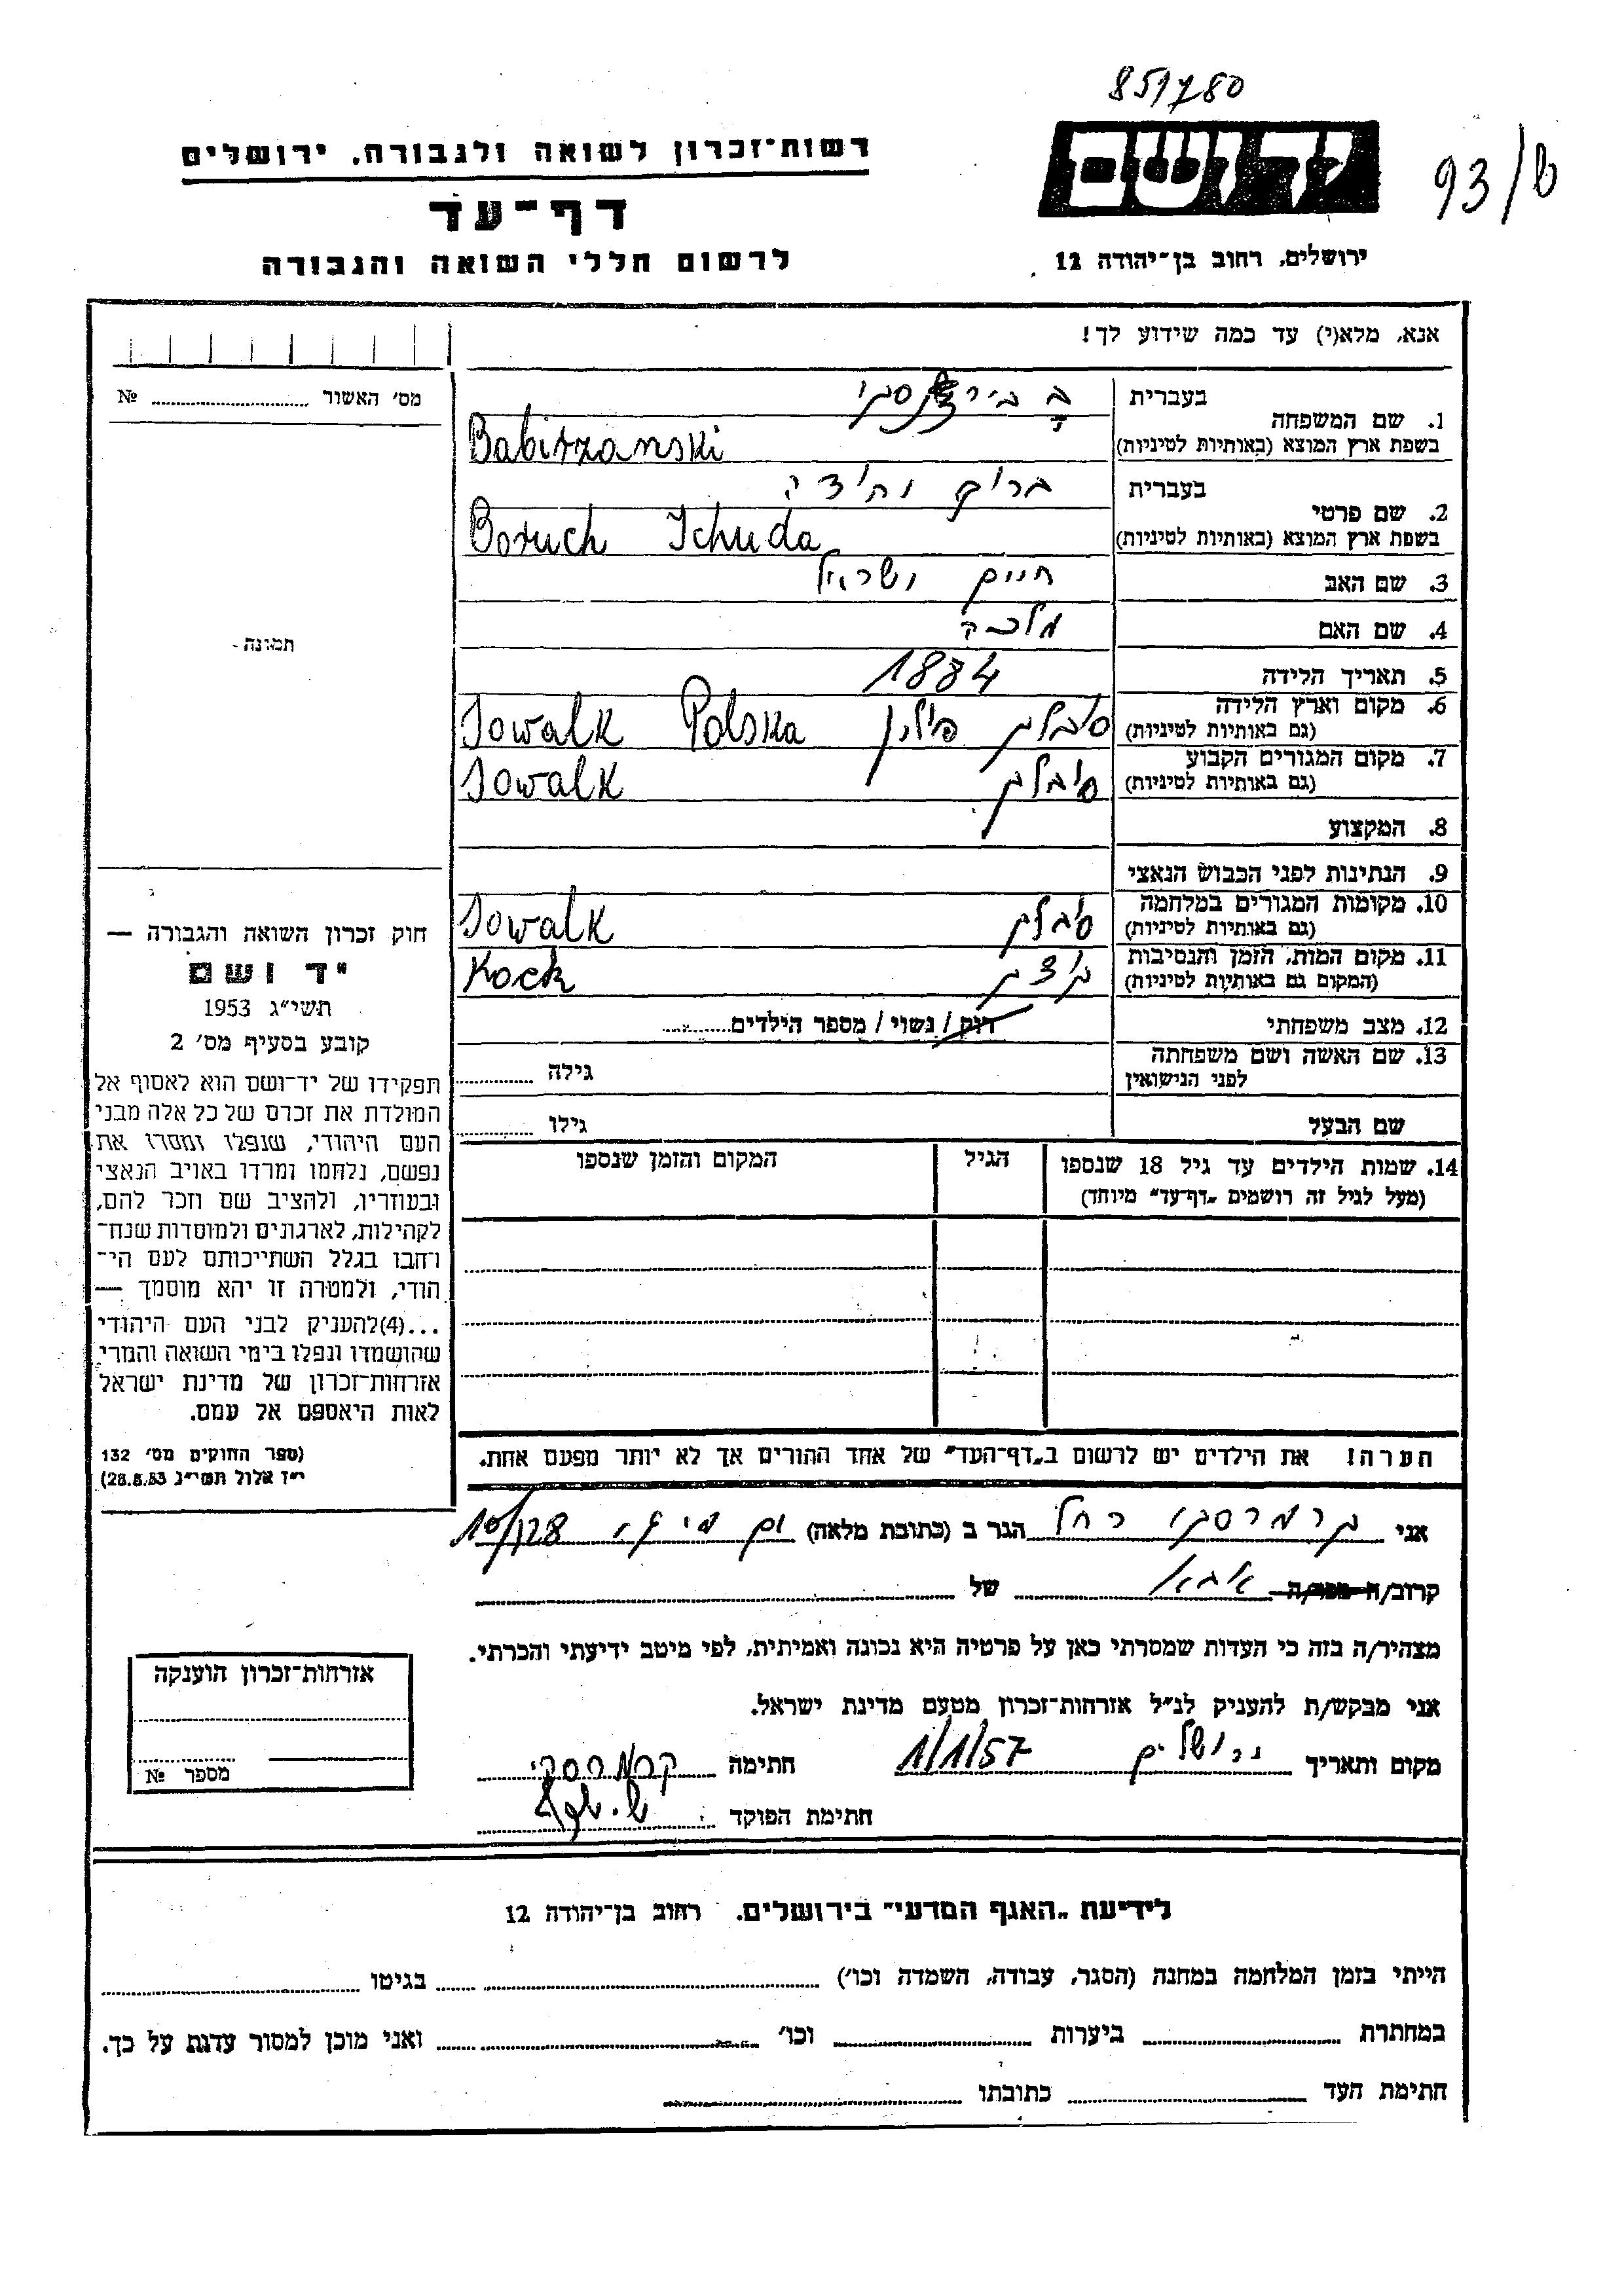 851780
93/ט
רשות־זכרון לשואה ולגבורה, ירושלים
יד ושם
דף־עד
לרשום חללי השואה והגבורה
ירושלים, רחוב בן־יהודה 12
אנא, מלא(י) עד כמה שידוע לך!
מס' האשור № 
1. שם המשפחה
בעברית
בשפת ארץ המוצא (באותיות לטיניות)
Babirzanski
2. שם פרטי
בעברית ברוך
בשפת ארץ המוצא (באותיות לטיניות)
Boruch Ichuda
3. שם האב חיים ישראל
4. שם האם מלכה
5. תאריך הלידה 1884
6. מקום וארץ הלידה
(גם באותיות לטיניות) סובלק פולין Sowalk Polska
7. מקום המגורים הקבוע
(גם באותיות לטיניות) סובלק Sowalk
8. המקצוע
9. הנתינות לפני הכבוש הנאצי
10. מקומות המגורים במלחמה
(גם באותיות לטיניות) סובלק Sowalk
11. מקום המות, הזמן והנסיבות
(המקום גם באותיות לטיניות) Kock
12. מצב משפחתי רווק / נשוי / מספר הילדים
13. שם האשה ושם משפחתה
לפני הנישואין גילה
שם הבעל גילו
14. שמות הילדים עד גיל 18 שנספו
(מעל לגיל זה רושמים "דף־עד" מיוחד)
הגיל
המקום והזמן שנספו
הערה! את הילדים יש לרשום ב"דף־העד" של אחד ההורים אך לא יותר מפעם אחת.
תמונה
חוק זכרון השואה והגבורה —
יד ושם
תשי"ג 1953
קובע בסעיף מס' 2
תפקידו של יד־ושם הוא לאסוף אל
המולדת את זכרם של כל אלה מבני
העם היהודי, שנפלו ומסרו את
נפשם, נלחמו ומרדו באויב הנאצי
ובעוזריו, ולהציב שם וזכר להם,
לקהילות, לארגונים ולמוסדות שנח־
רחבו בגלל השתייכותם לעם הי־
הודי, ולמטרה זו יהא מוסמך —
...(4)להעניק לבני העם היהודי
שהושמדו ונפלו בימי השואה והמרי
אזרחות־זכרון של מדינת ישראל
לאות היאספם אל עמם.
(ספר החוקים מס' 132
י"ז אלול תשי"ג 28.8.53)
אני רחל הגר ב (כתובת מלאה) 10/128
קרוב/ה מכר/ה אבא של
מצהיר/ה בזה כי העדות שמסרתי כאן על פרטיה היא נכונה ואמיתית, לפי מיטב ידיעתי והכרתי.
אני מבקש/ת להעניק לנ"ל אזרחות־זכרון מטעם מדינת ישראל.
מקום ותאריך ירושלים 1/1/57 חתימה
חתימת הפוקד
אזרחות־זכרון הוענקה
מספר №
לידיעת "האגף המדעי" בירושלים, רחוב בן־יהודה 12
הייתי בזמן המלחמה במחנה (הסגר, עבודה, השמדה וכו') בגיטו
במחתרת ביערות וכו' ואני מוכן למסור עדות על כך.
חתימת העד כתובתו